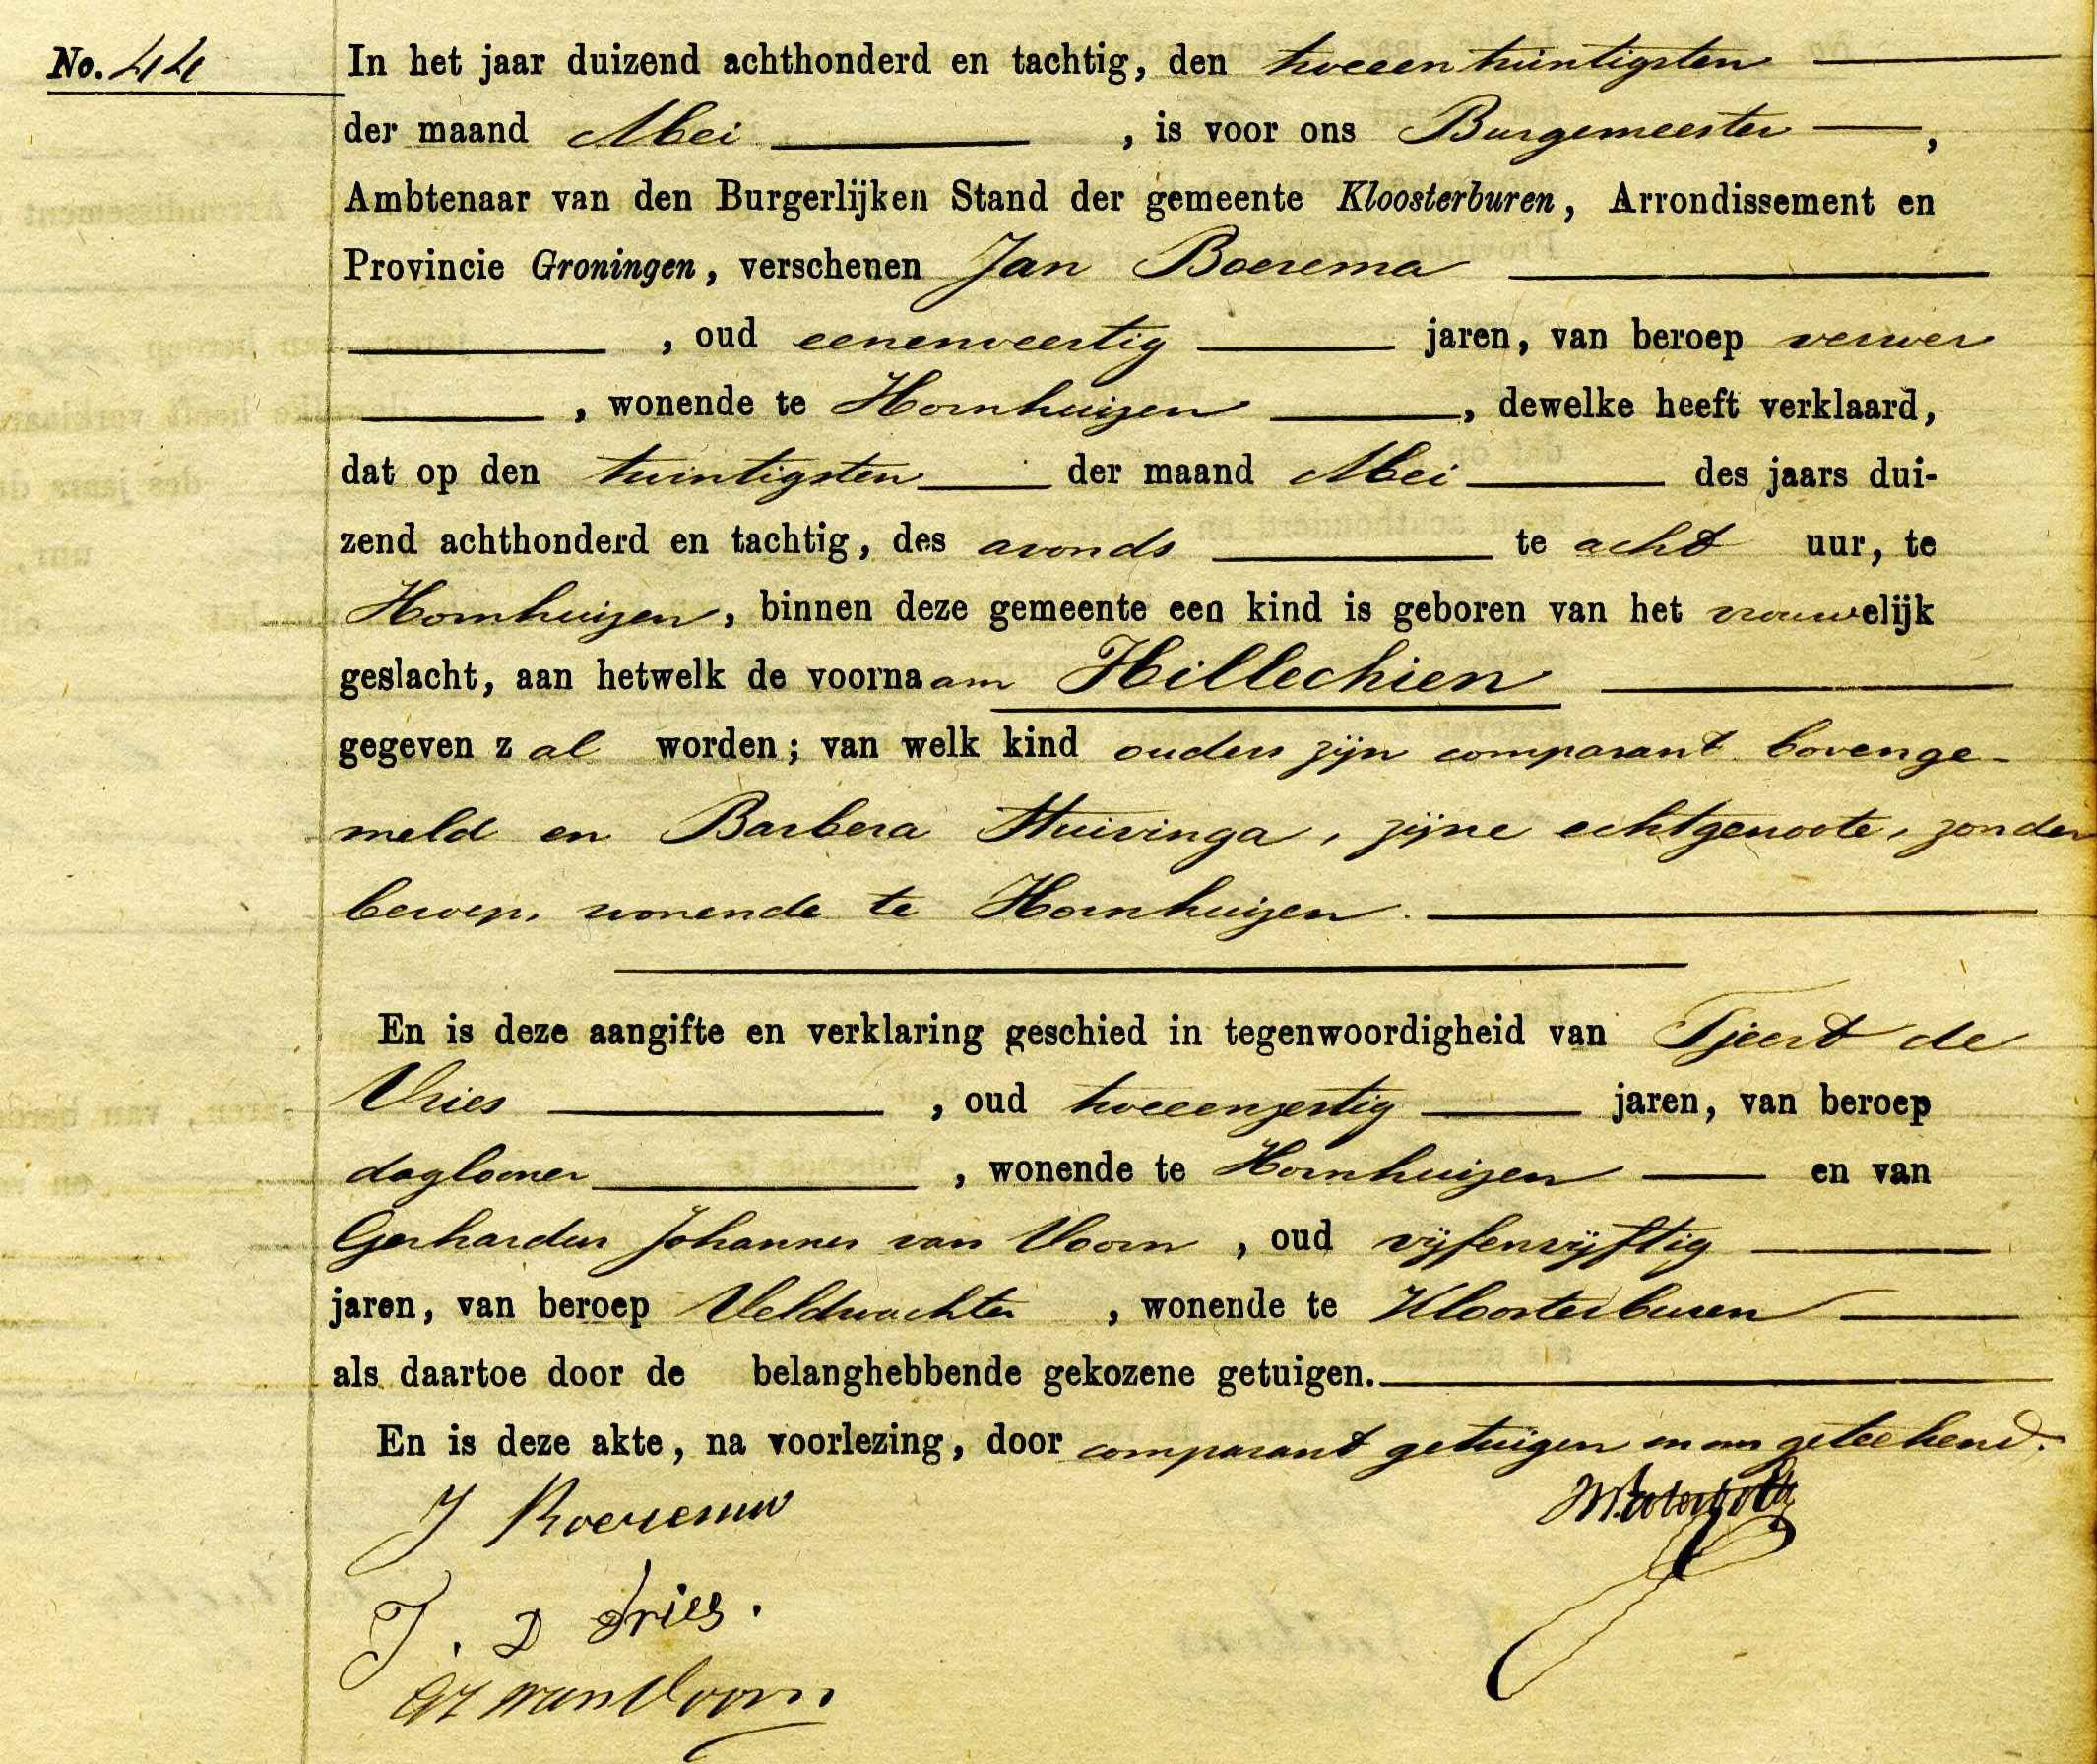 No. 44
In het jaar duizend achthonderd en tachtig, den tweeentwintigsten
der maand Mei , is voor ons Burgemeester ,
Ambtenaar van den Burgerlijken Stand der gemeente Kloosterburen, Arrondissement en
Provincie Groningen, verschenen Jan Boerema
, oud eenenveertig jaren, van beroep verwer
, wonende te Hornhuizen , dewelke heeft verklaard,
dat op den twintigsten der maand Mei des jaars dui-
zend achthonderd en tachtig, des avonds te acht uur, te
Hornhuizen, binnen deze gemeente een kind is geboren van het vrouwelijk
geslacht, aan hetwelk de voornaam Hillechien
gegeven zal worden; van welk kind ouders zijn comparant bovenge-
meld en Barbera Huivinga, zijne echtgenoote, zonder
beroep, wonende te Hornhuizen.
En is deze aangifte en verklaring geschied in tegenwoordigheid van Tjeert de
Vries , oud tweeenzestig jaren, van beroep
daglooner , wonende te Hornhuizen en van
Gerhardus Johannes van Voorn , oud vijfenvijftig
jaren, van beroep Veldwachter , wonende te Kloosterburen
als daartoe door de belanghebbende gekozene getuigen.
En is deze akte, na voorlezing, door comparant getuigen en ons geteekend.
J Boerema
T. D Vries.
GJ van Voorn